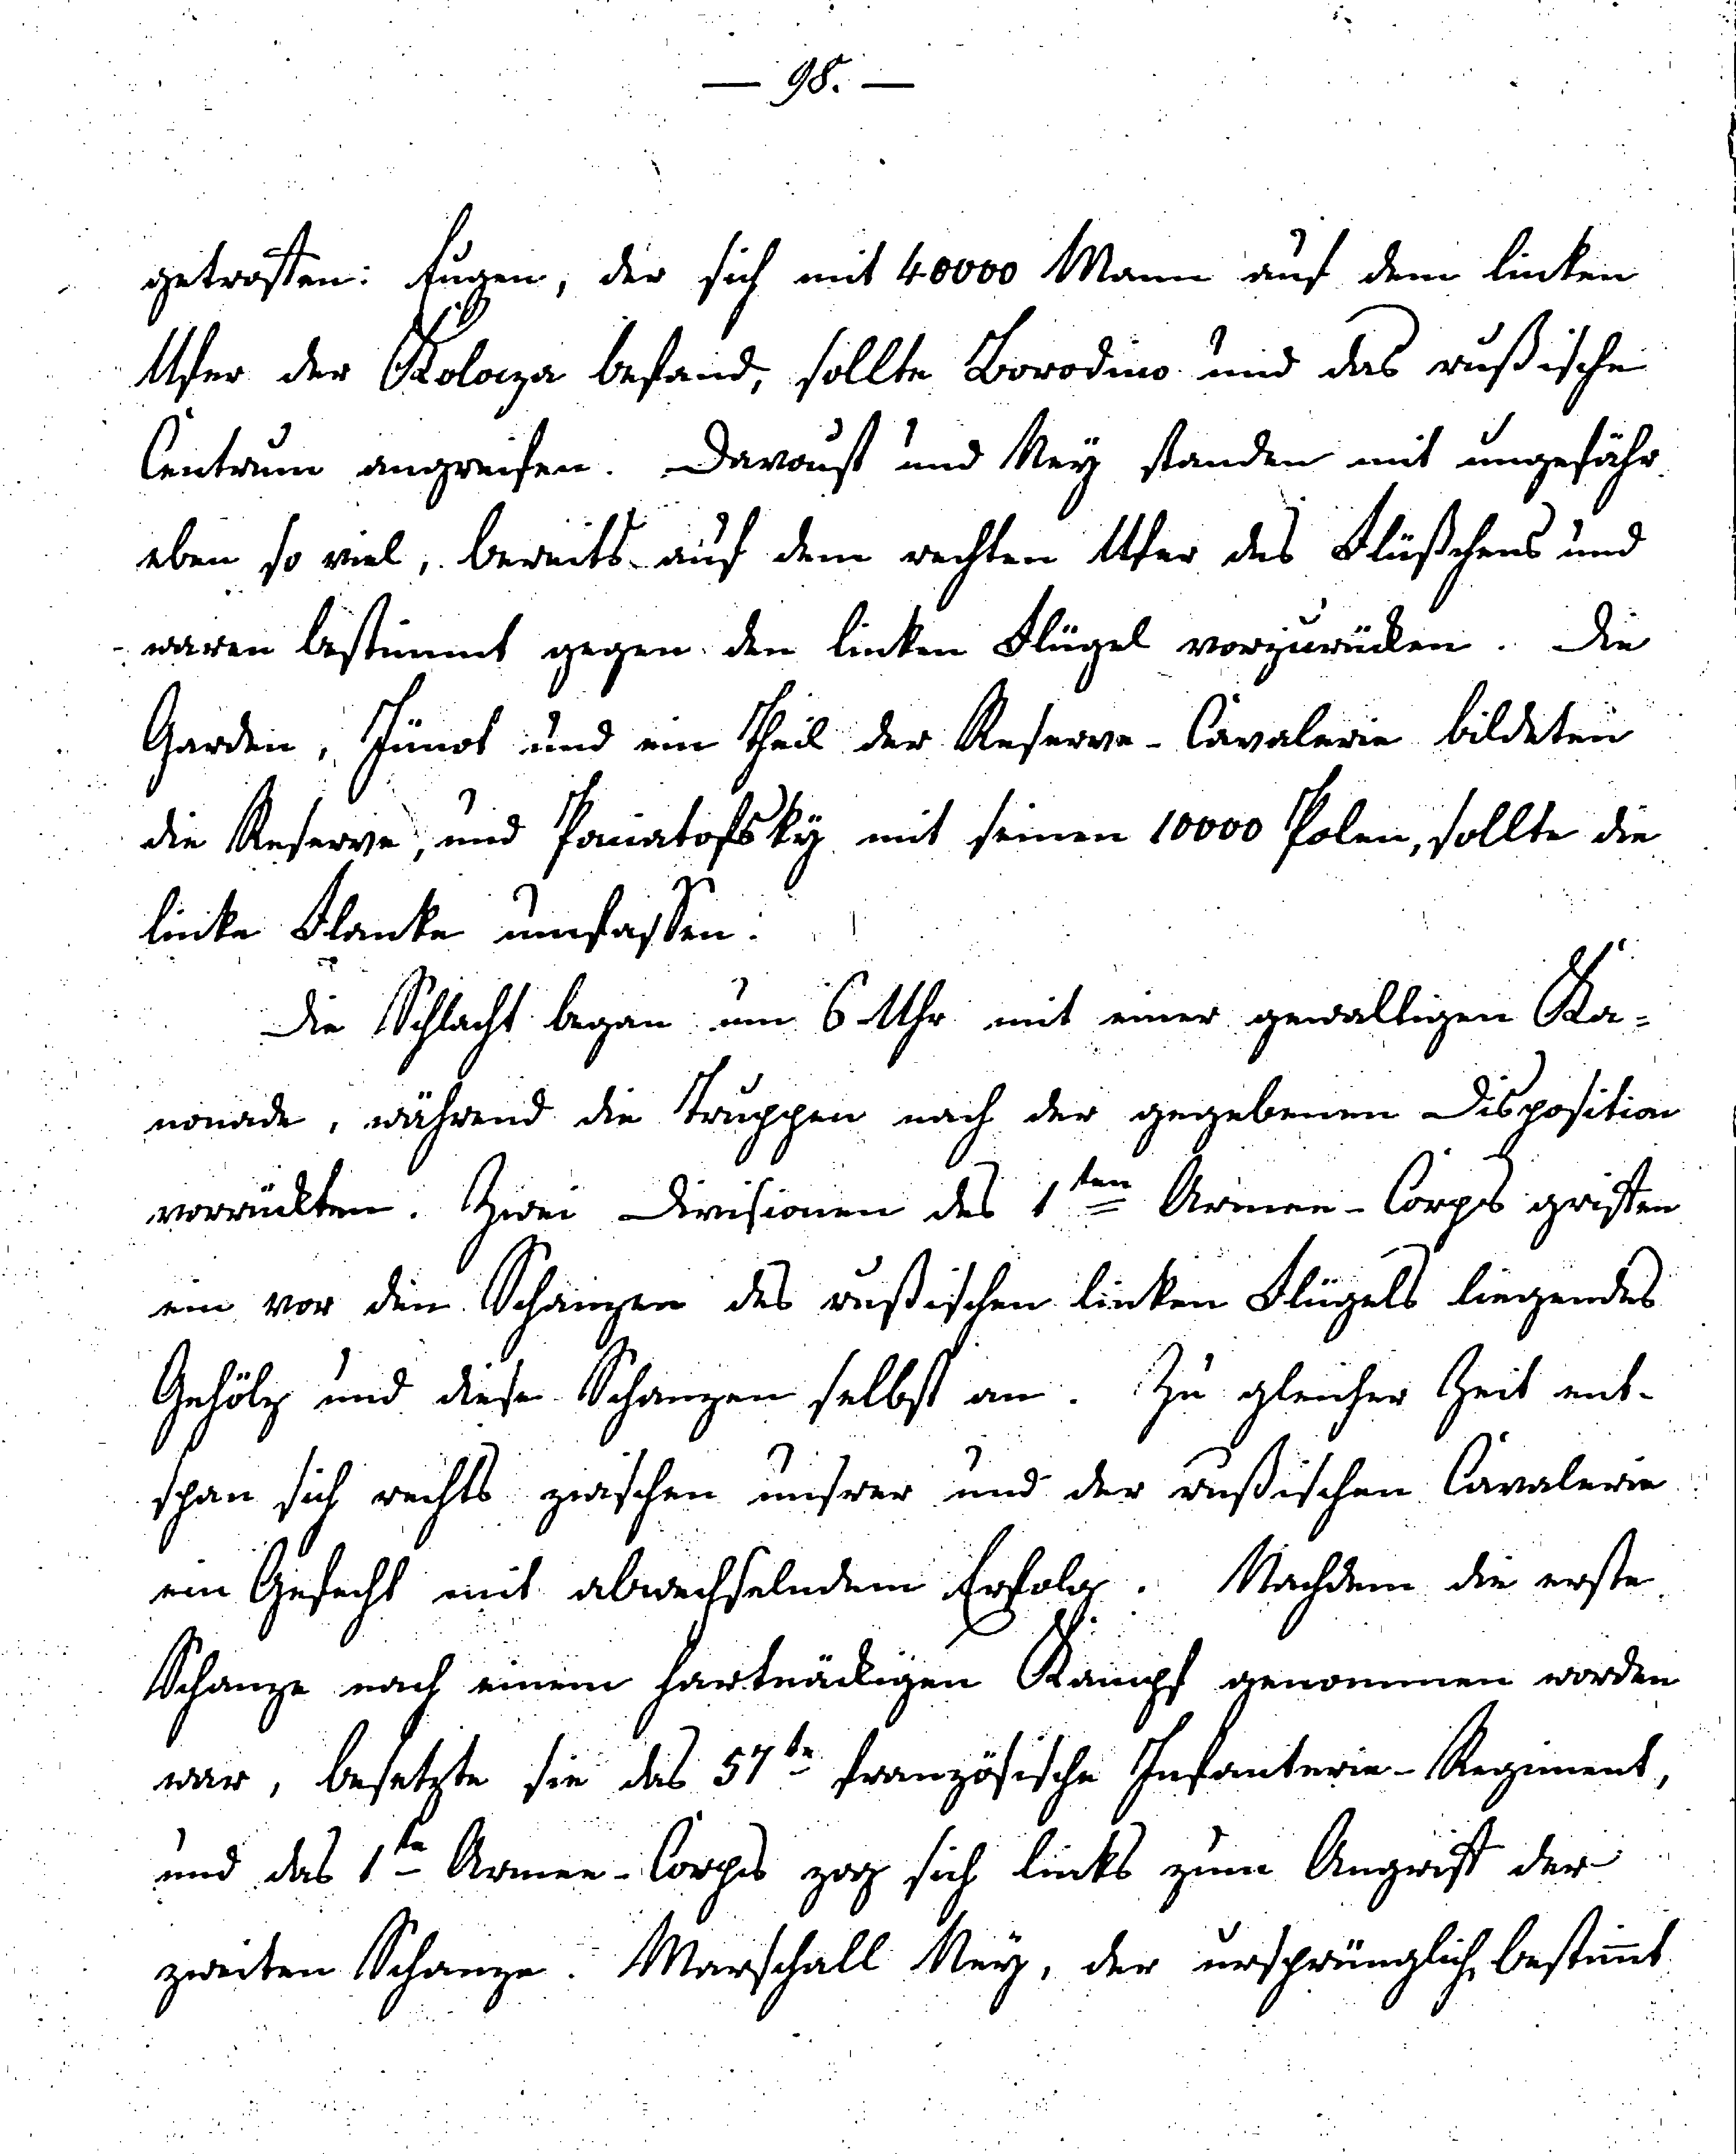 — 98. —
getroffen: Eugen, der sich mit 40000 Mann auf dem linken
Ufer der Kolocza befand, sollte Borodino und das rußische
Centrum angreifen. Davoust und Ney standen mit ungefähr
eben so viel, bereits auf dem rechten Ufer des Flüßchens und
waren bestimmt gegen den linken Flügel vorzurücken. Die
Garden, Jünot und ein Theil der Reserve-Cavalerie bildeten
die Reserve, und Poniatofsky mit seinen 10000 Polen, sollte die
linke Flanke umfassen.
Die Schlacht began um 6 Uhr mit einer gewaltigen Ka-
nonade, während die Truppen nach der gegebenen Disposition
vorrückten. Zwei Divisionen des 1ten Armee-Corps griffen
ein vor den Schanzen des rußischen linken Flügels liegendes
Gehölz und diese Schanzen selbst an. Zu gleicher Zeit ent-
span sich rechts zwischen unsrer und der rußischen Cavalerie
ein Gefecht mit abwechselndem Erfolg. Nachdem die erste
Schanze nach einem hartnäckigen Kampf genommen worden
war, besetzte sie das 57te französische Infanterie-Regiment,
und das 1te Armee-Corps zog sich links zum Angriff der
zweiten Schanze. Marschall Ney, der ursprünglich bestimt